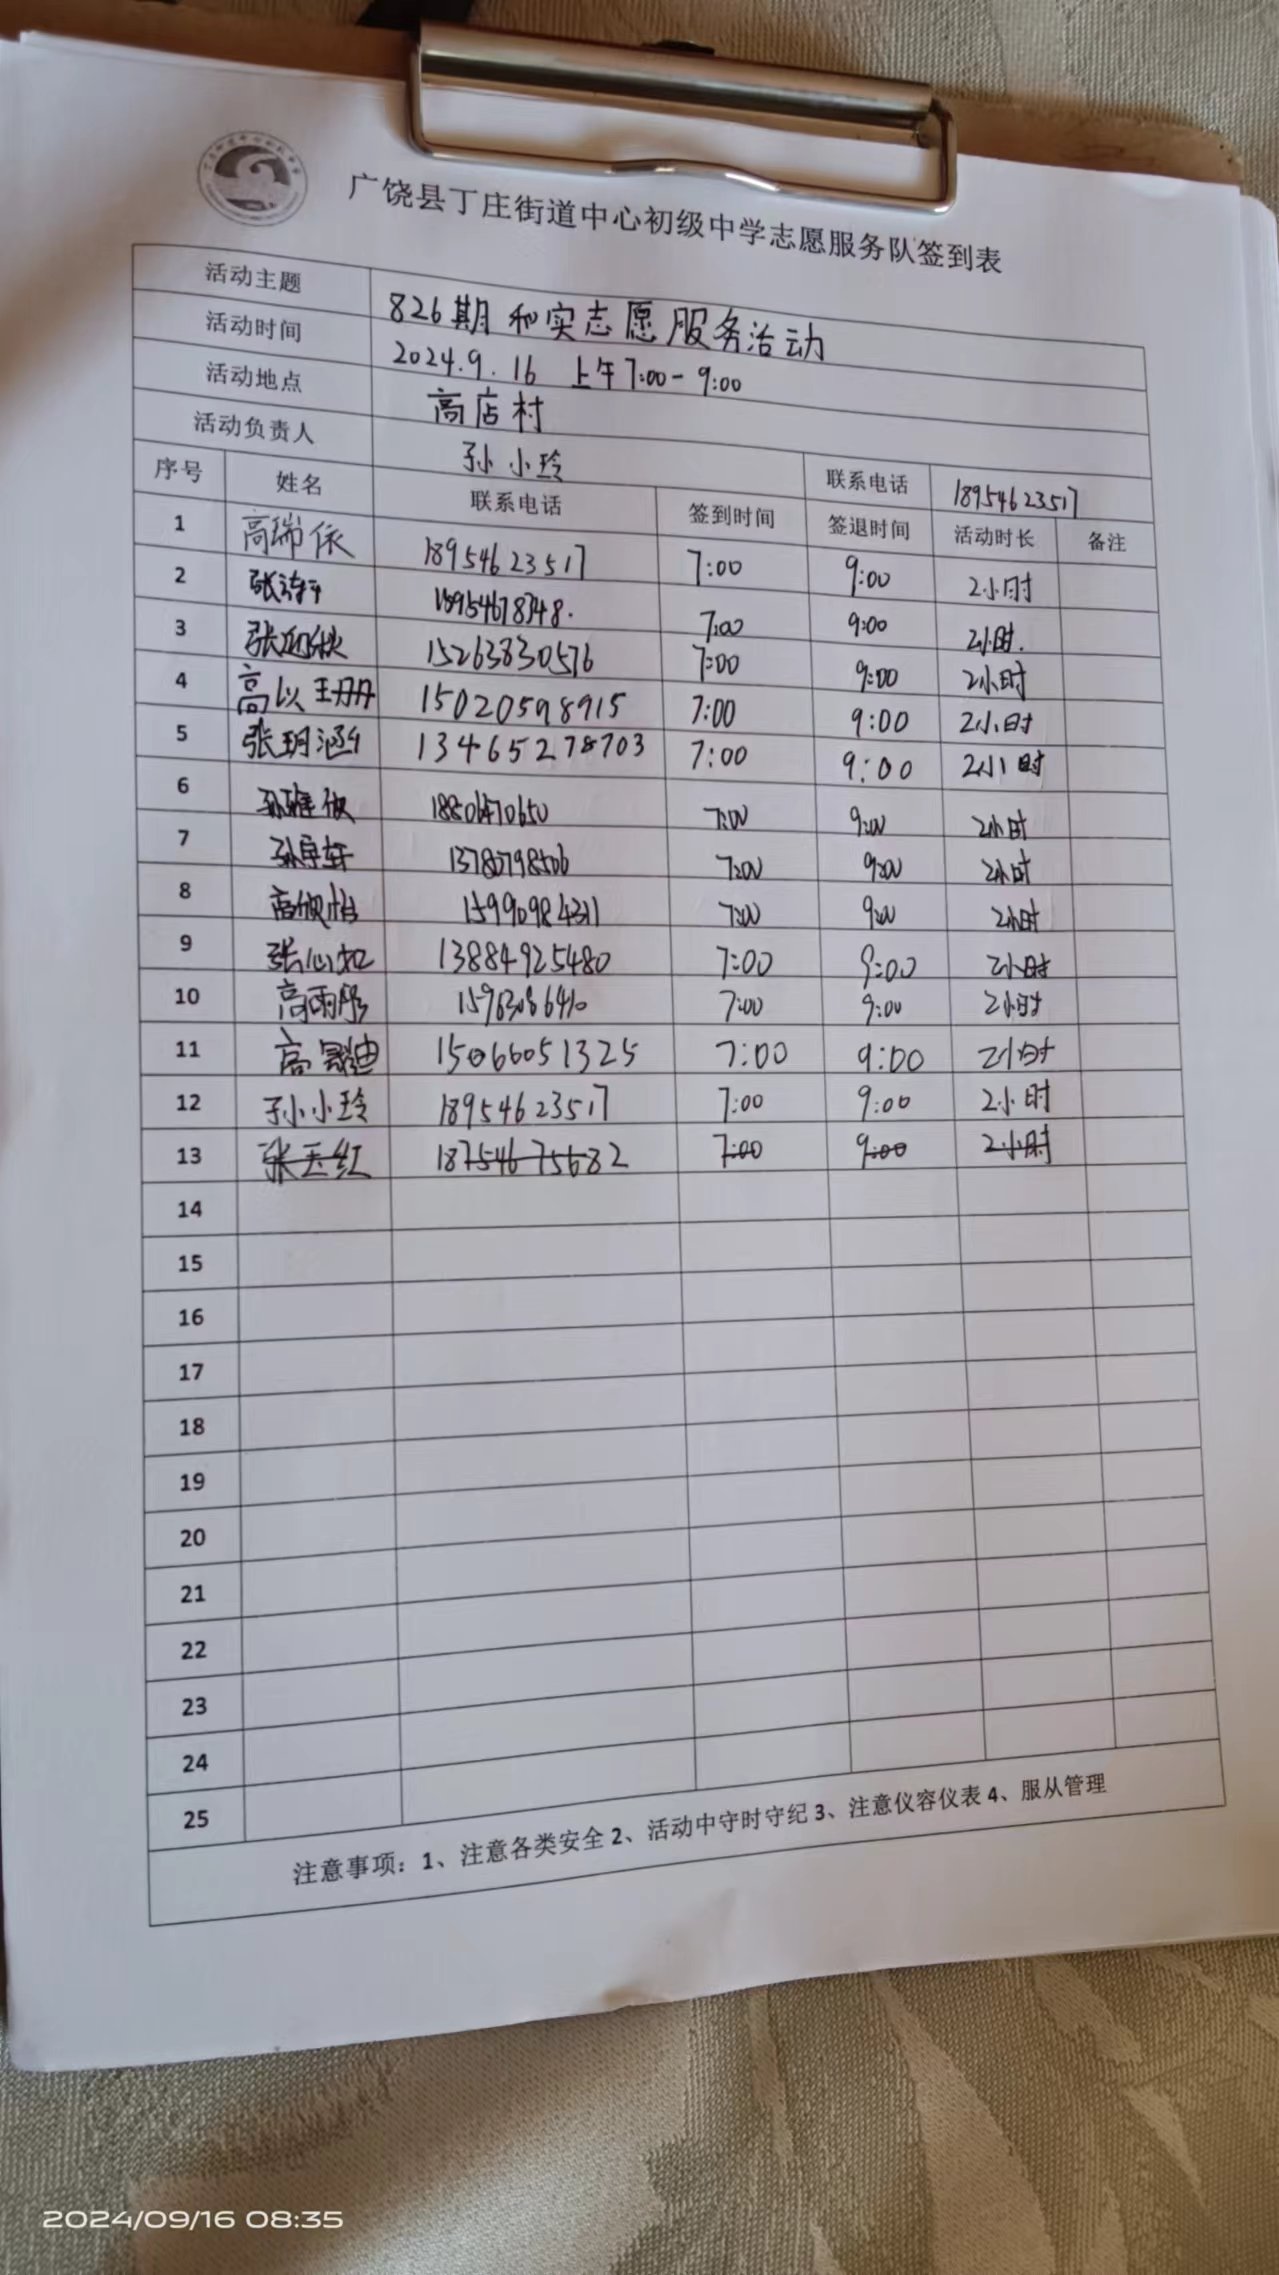 广饶县丁庄街道中心初级中学志愿服务队签到表
活动主题 826期和实志愿服务活动
活动时间 2024.9.16 上午7:00-9:00
活动地点 高店村
活动负责人 孙小玲 联系电话 18954623517
序号 姓名 联系电话 签到时间 签退时间 活动时长 备注
1 高瑞依 18954623517 7:00 9:00 2小时
2 18954678348. 7:00 9:00 2小时.
3 15263830576 7:00 9:00 2小时
4 高以珊 15020598915 7:00 9:00 2小时
5 张玥涵 13465278703 7:00 9:00 2小时
6 18806470650 7:00 9:00 2小时
7 13780798506 7:00 9:00 2小时
8 高欣怡 15990984311 7:00 9:00 2小时
9 张心如 13884925480 7:00 9:00 2小时
10 高雨彤 7:00 9:00 2小时
11 15066051325 7:00 9:00 2小时
12 孙小玲 18954623517 7:00 9:00 2小时
13 张玉红 18754675682 7:00 9:00 2小时
14
15
16
17
18
19
20
21
22
23
24
25
注意事项：1、注意各类安全 2、活动中守时守纪 3、注意仪容仪表 4、服从管理
2024/09/16 08:35